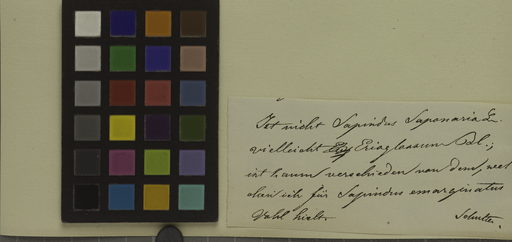 Ist nicht Sapindus Saponaria L.
vielleicht Erioglossum Bl.;
ist kaum verschieden von dem, wel
chen ich für Sapindus emarginatus
Vahl hielt.